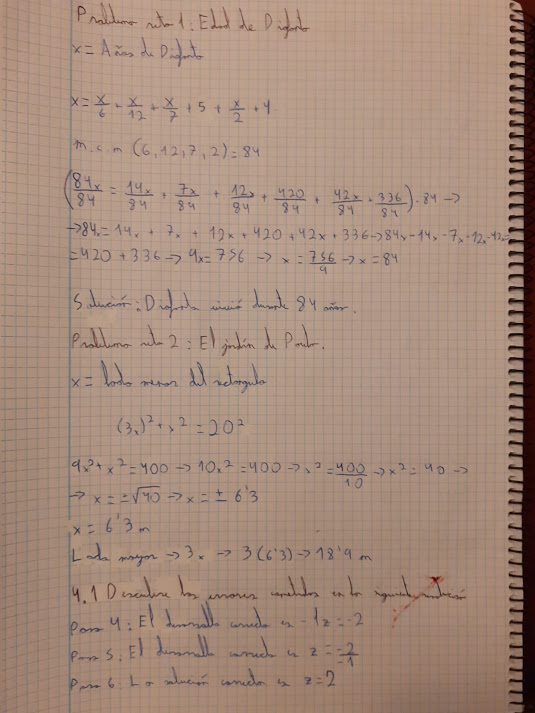 Problema reto 1: Edad de Diofanto
x = Años de Diofanto
x = x/6 + x/12 + x/7 + 5 + x/2 + 4
m.c.m (6,12,7,2) = 84
(84x/84 = 14x/84 + 7x/84 + 12x/84 + 420/84 + 42x/84 + 336/84) · 84 →
→ 84x = 14x + 7x + 12x + 420 + 42x + 336 → 84x - 14x - 7x - 12x - 42x =
= 420 + 336 → 9x = 756 → x = 756/9 → x = 84
Solución: Diofanto vivió durante 84 años.
Problema reto 2: El jardín de Paulo.
x = lado menor del rectángulo
(3x)² + x² = 20²
9x² + x² = 400 → 10x² = 400 → x² = 400/10 → x² = 40 →
→ x = ±√40 → x = ± 6'3
x = 6'3 m
Lado mayor → 3x → 3(6'3) → 18'9 m
4.1 Descubre los errores cometidos en la siguiente
Paso 4: El desarrollo correcto es -1z = -2
Paso 5: El desarrollo correcto es z = -2/-1
Paso 6: La solución correcta es z = 2